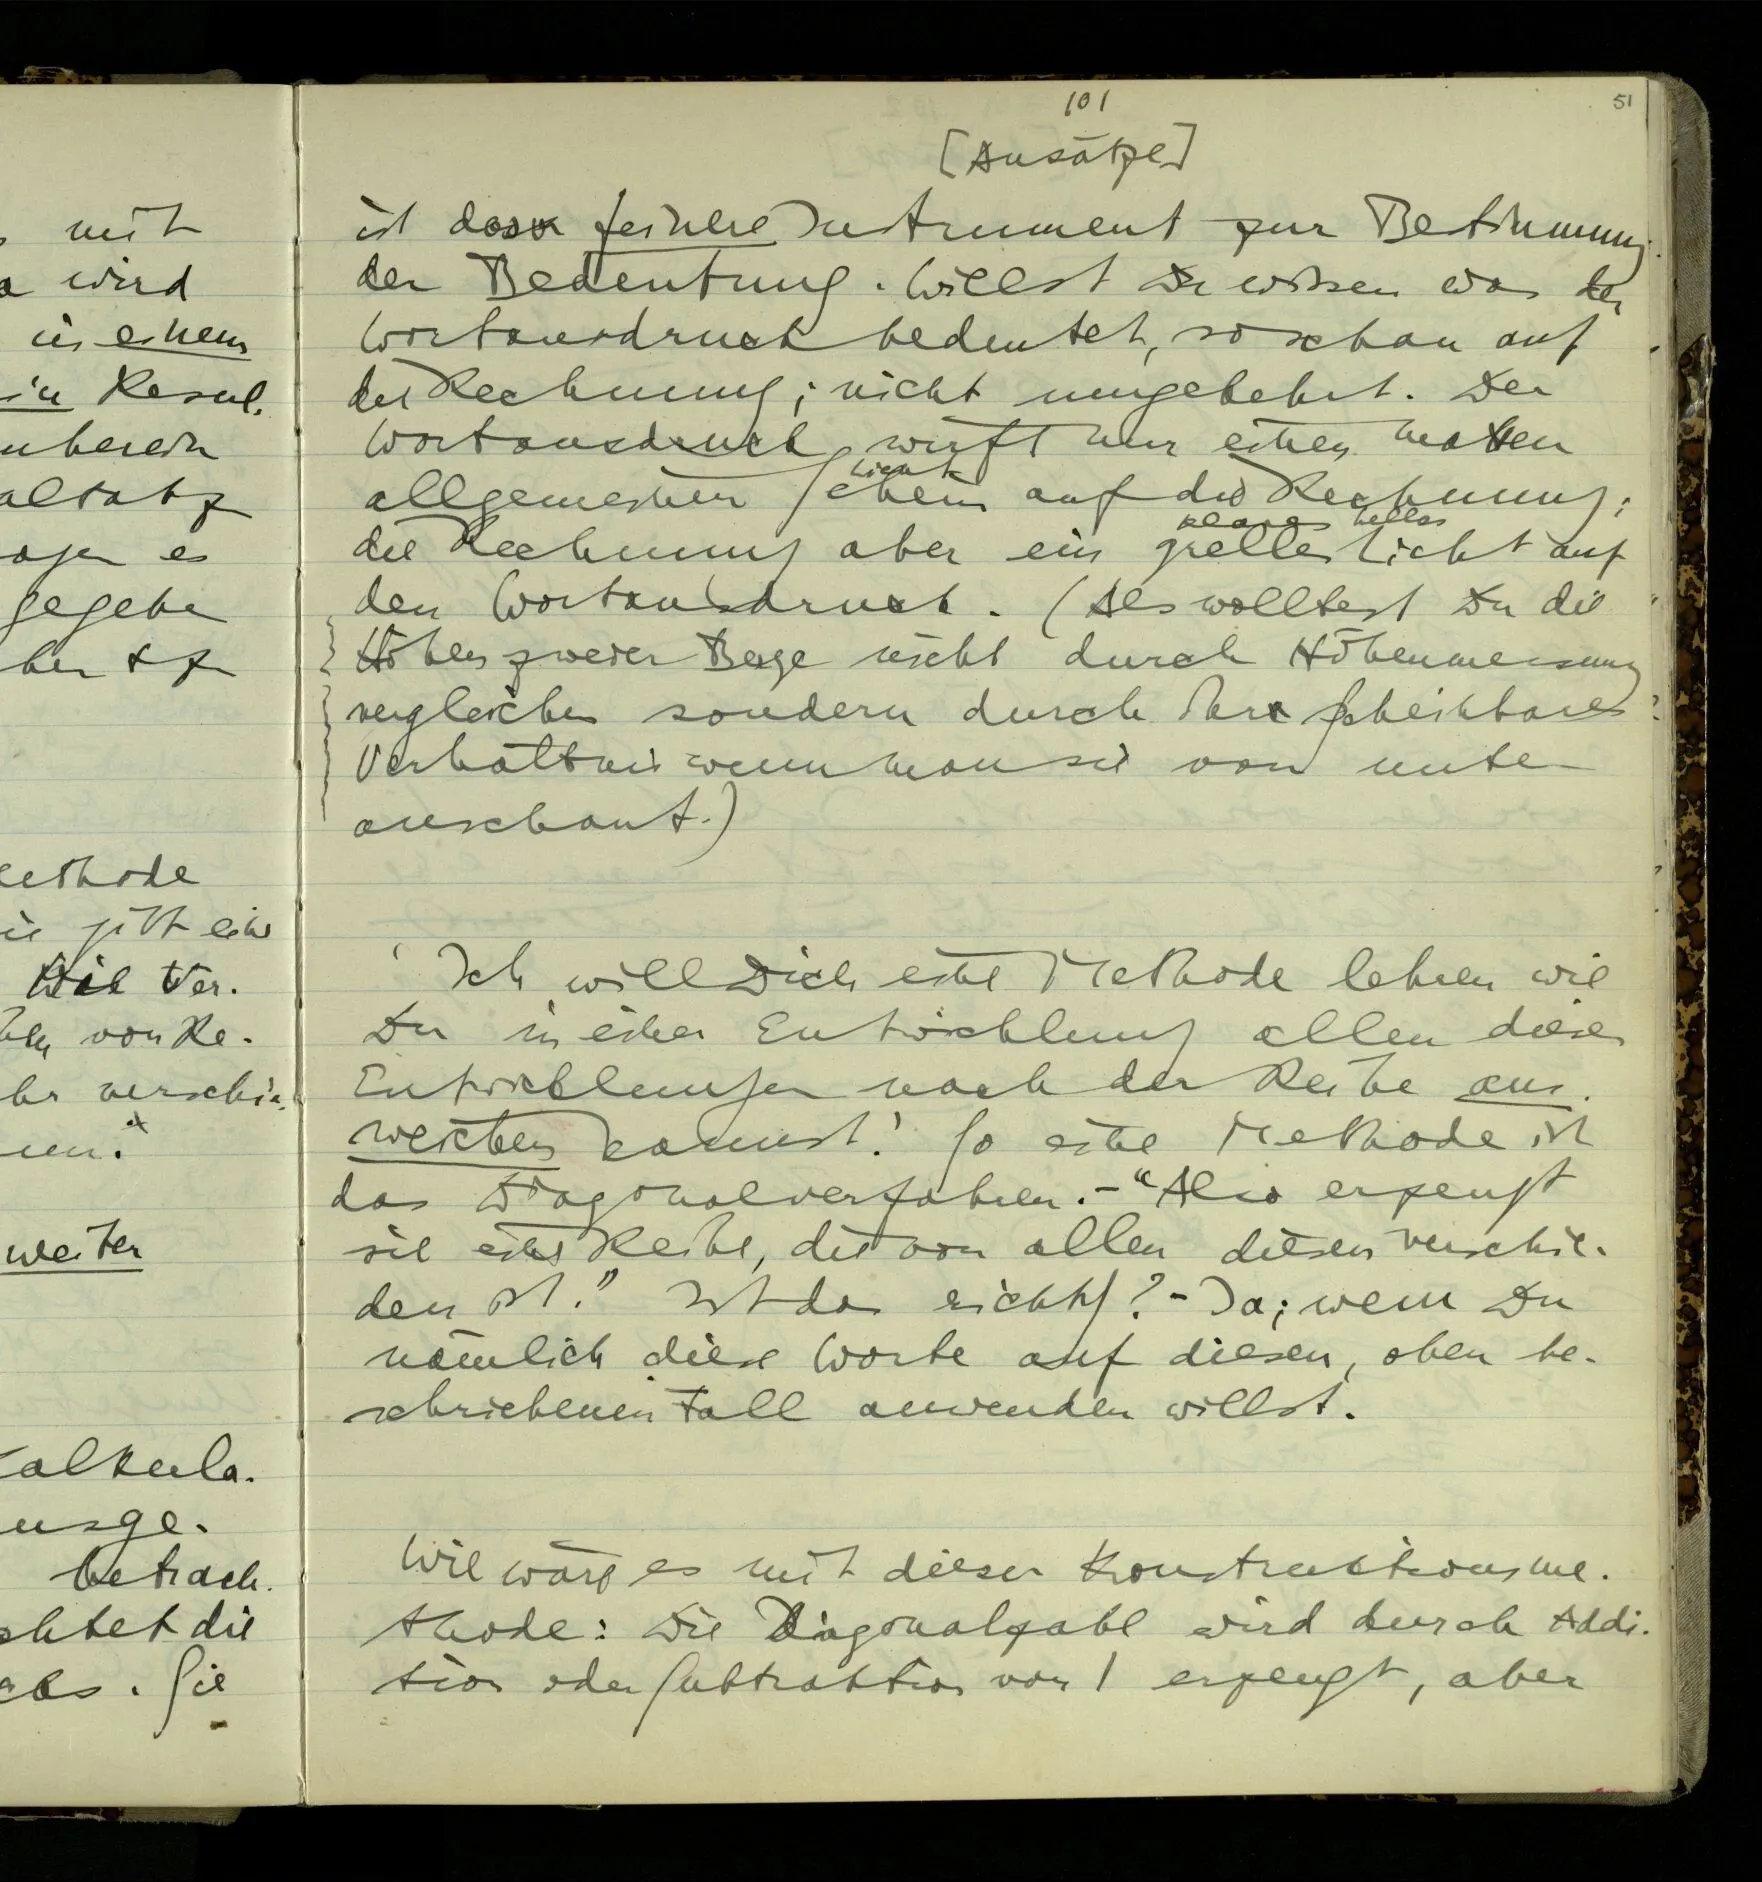 mit
wird
in einem
in Resul-
gegebe
Methode
gibt eine
Die Ver-
von Re-
verschie-
weiter
Kalkula-
ausge-
betrach-
chtet die
Sie
101
51
[Ansätze]
ist das feinere Instrument zur Bestimmung
der Bedeutung. Willst Du wissen was der
Wortausdruck bedeutet, so schau auf
die Rechnung; nicht umgekehrt. Der
Wortausdruck wirft nur einen matten
Licht
allgemeinen Schein auf die Rechnung;
klares helles
die Rechnung aber ein grelles Licht auf
den Wortausdruck. (Als wolltest Du die
Höhen zweier Berge nicht durch Höhenmessung
vergleichen sondern durch ihr scheinbares
Verhältnis wenn man sie von unten
anschaut.)
'Ich will Dich eine Methode lehren wie
Du in einer Entwicklung allen diesen
Entwicklungen nach der Reihe aus-
weichen kannst.' So eine Methode ist
das Diagonalverfahren. – "Also erzeugt
sie eine Reihe, die von allen diesen verschie-
den ist." Ist das richtig? – Ja; wenn Du
nämlich diese Worte auf diesen, oben be-
schriebenen Fall anwenden willst.
Wie wäre es mit dieser Konstruktionsme-
thode: Die Diagonalzahl wird durch Addi-
tion oder Subtraktion von 1 erzeugt, aber